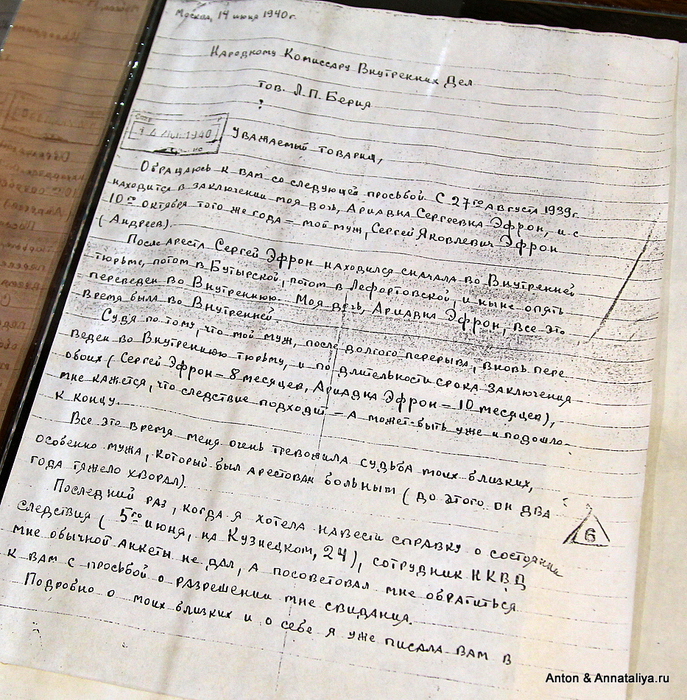 Москва, 14 июня 1940 г.
Народному Комиссару Внутренних Дел
тов. Л.П. Берия
Уважаемый товарищ,
1940
Обращаюсь к вам со следующей просьбой. С 27го августа 1939 г.
находится в заключении моя дочь, Ариадна Сергеевна Эфрон, и с
10го октября того же года – мой муж, Сергей Яковлевич Эфрон
(Андреев).
После ареста Сергей Эфрон находился сначала во Внутренней
тюрьме, потом в Бутырской, потом в Лефортовской, и ныне опять
переведен во Внутреннюю. Моя дочь, Ариадна Эфрон, все это
время была во Внутренней.
Судя по тому, что мой муж, после долгого перерыва, вновь пере
веден во Внутреннюю тюрьму, и по длительности срока заключения
обоих (Сергей Эфрон – 8 месяцев, Ариадна Эфрон – 10 месяцев),
мне кажется, что следствие подходит – а может-быть уже и подошло –
к концу.
Все это время меня очень тревожила судьба моих близких,
особенно мужа, который был арестован больным (до этого он два
года тяжело хворал).
Последний раз, когда я хотела навести справку о состоянии
следствия (5го июня, на Кузнецком, 24), сотрудник НКВД
мне обычной анкеты не дал, а посоветовал мне обратиться
к вам с просьбой о разрешении мне свидания.
Подробно о моих близких и о себе я уже писала вам в
6
Anton & Annataliya.ru